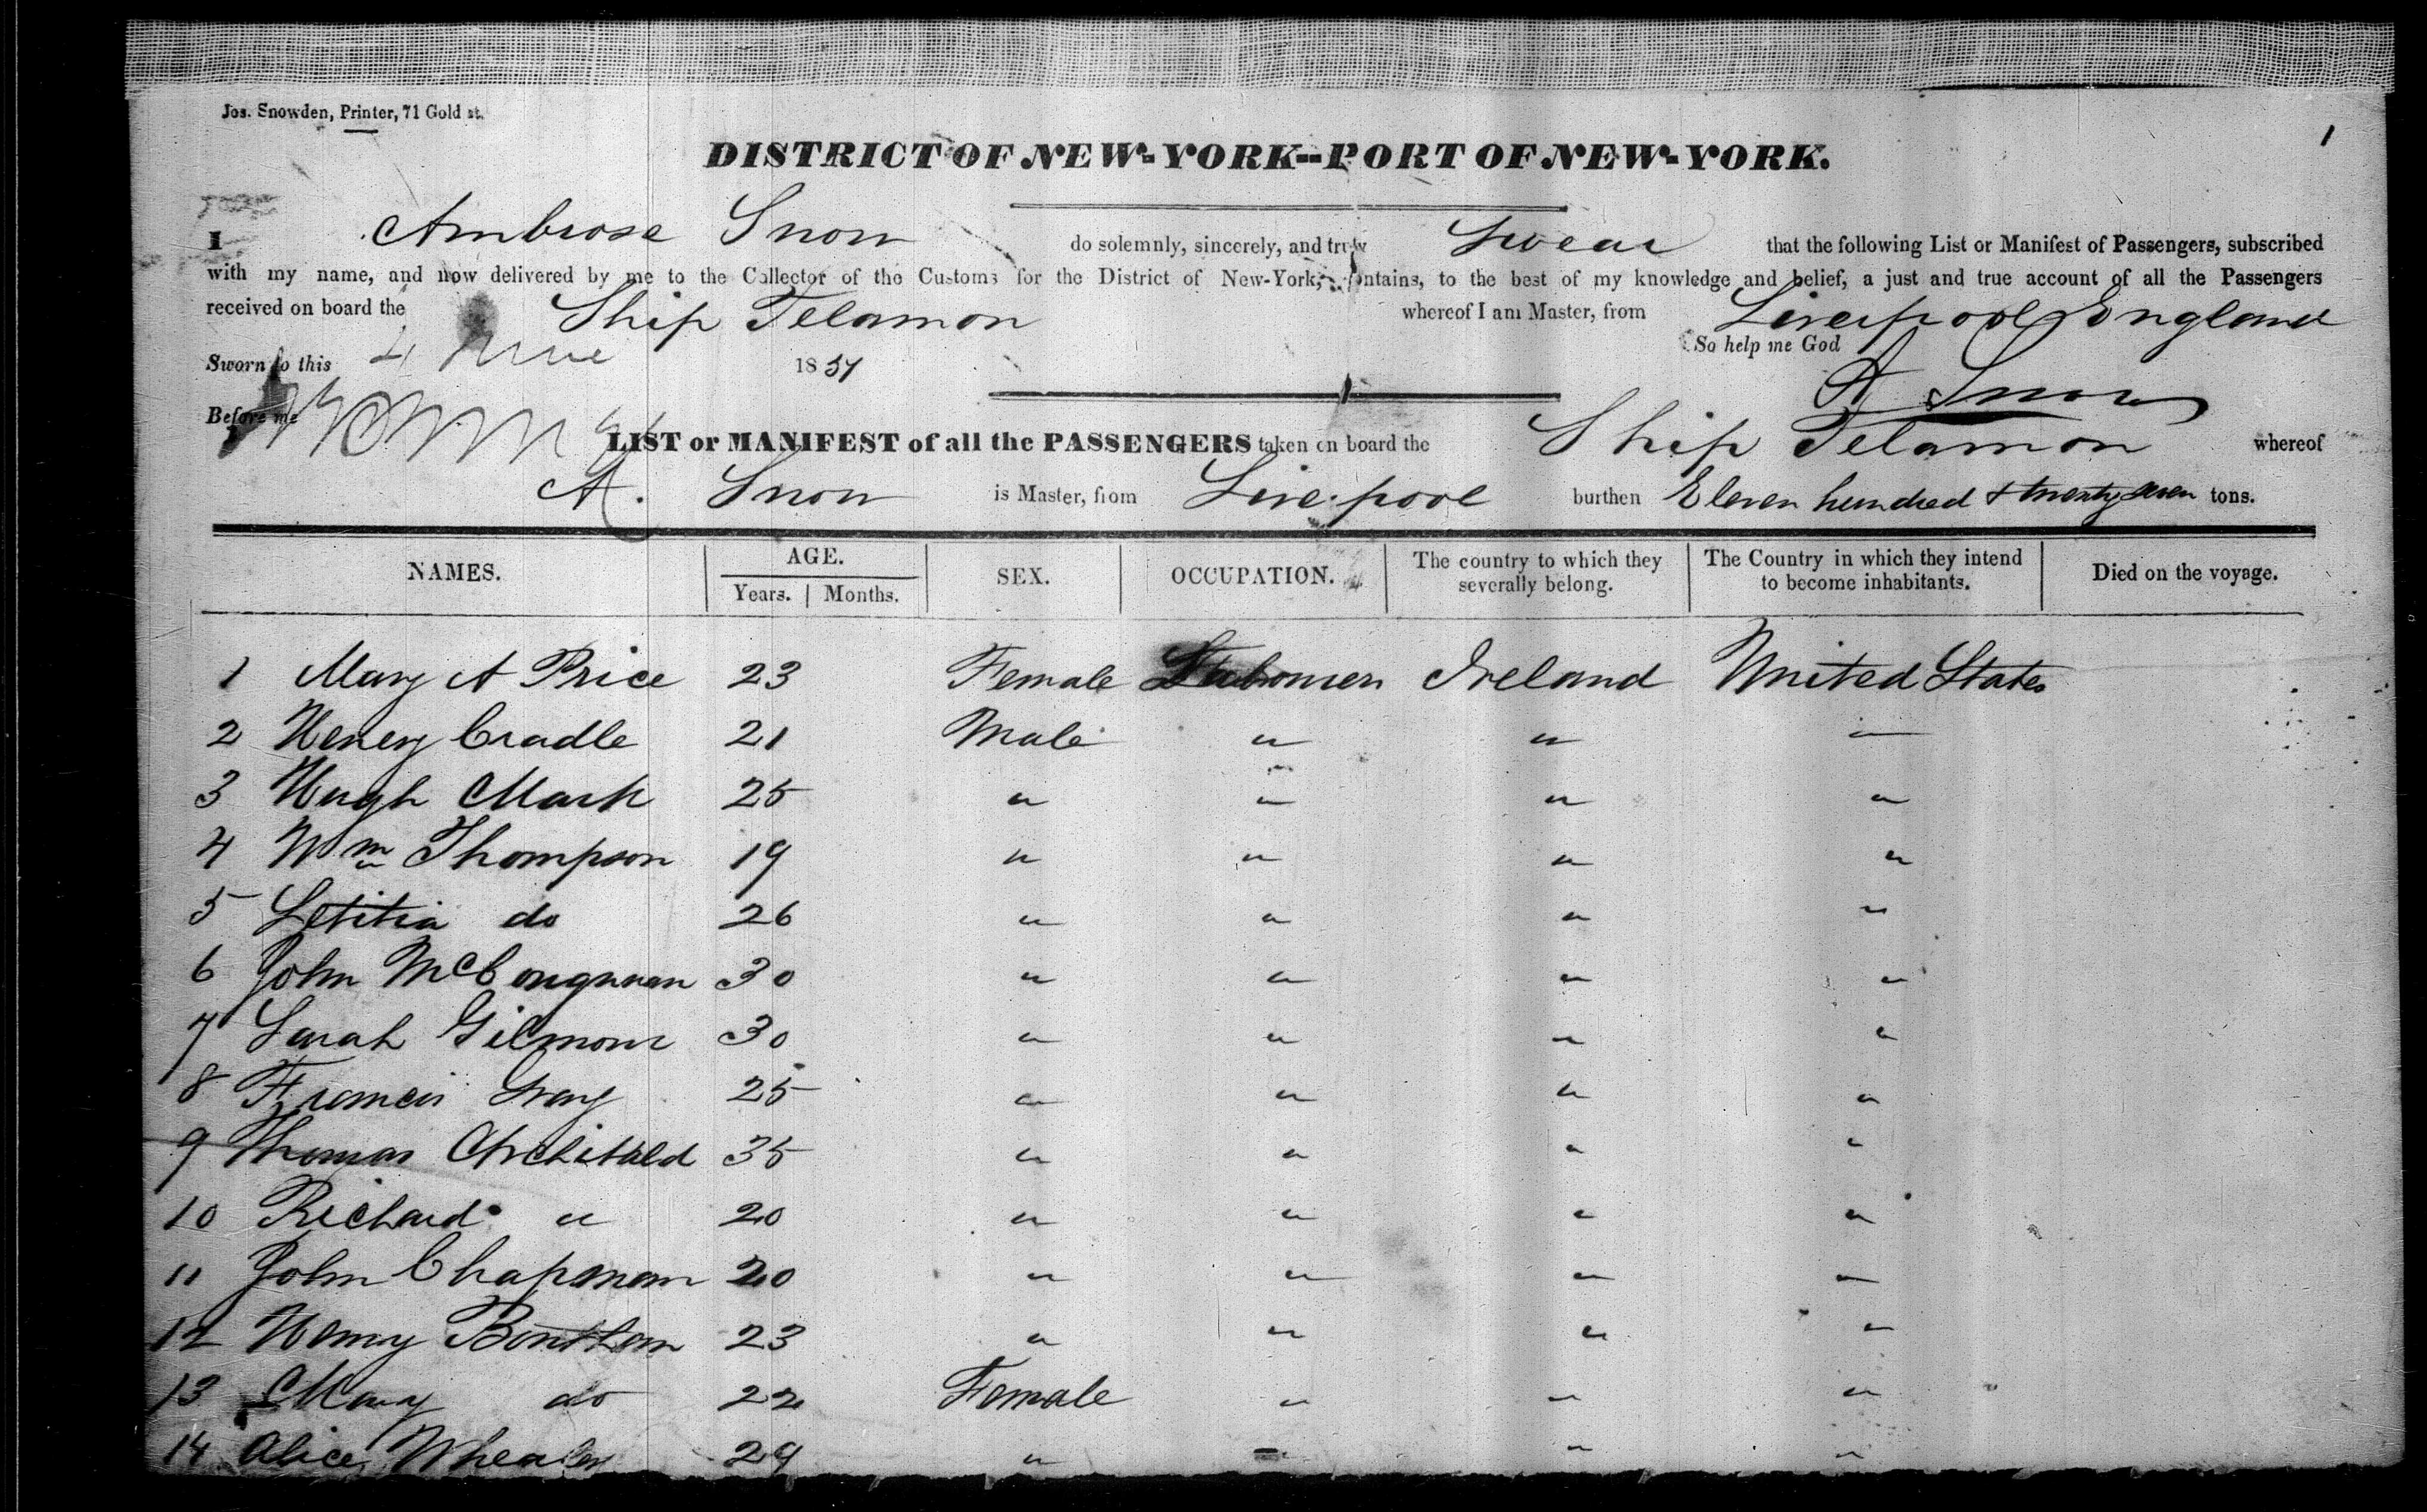 Jos. Snowden, Printer, 71 Gold st.
1
DISTRICT OF NEW-YORK--PORT OF NEW-YORK.
I Ambrose Snow do solemnly, sincerely, and truly Swear that the following List or Manifest of Passengers, subscribed
with my name, and now delivered by me to the Collector of the Customs for the District of New-York, contains, to the best of my knowledge and belief, a just and true account of all the Passengers
received on board the Ship Telamon whereof I am Master, from Liverpool England
So help me God
Sworn to this 4 June 1857
A Snow
Before me
LIST or MANIFEST of all the PASSENGERS taken on board the Ship Telamon whereof
A. Snow is Master, from Liverpool burthen Eleven hundred & twenty seven tons.
NAMES. AGE. Years. Months. SEX. OCCUPATION. The country to which they severally belong. The Country in which they intend to become inhabitants. Died on the voyage.
1 Mary A Price 23 Female Ireland United States
2 Henery Cradle 21 Male " " "
3 Hugh Mark 25 " " " "
4 Wm Thompson 19 " " " "
5 Letitia do 26 " " " "
6 John 30 " " " "
7 Sarah Gilmour 30 " " " "
8 Francis Gray 25 " " " "
9 Thomas Archibald 35 " " " "
10 Richard " 20 " " " "
11 John Chapman 20 " " " "
12 Henry 23 " " " "
13 Mary do 22 Female " " "
14 Alice 29 " " " "